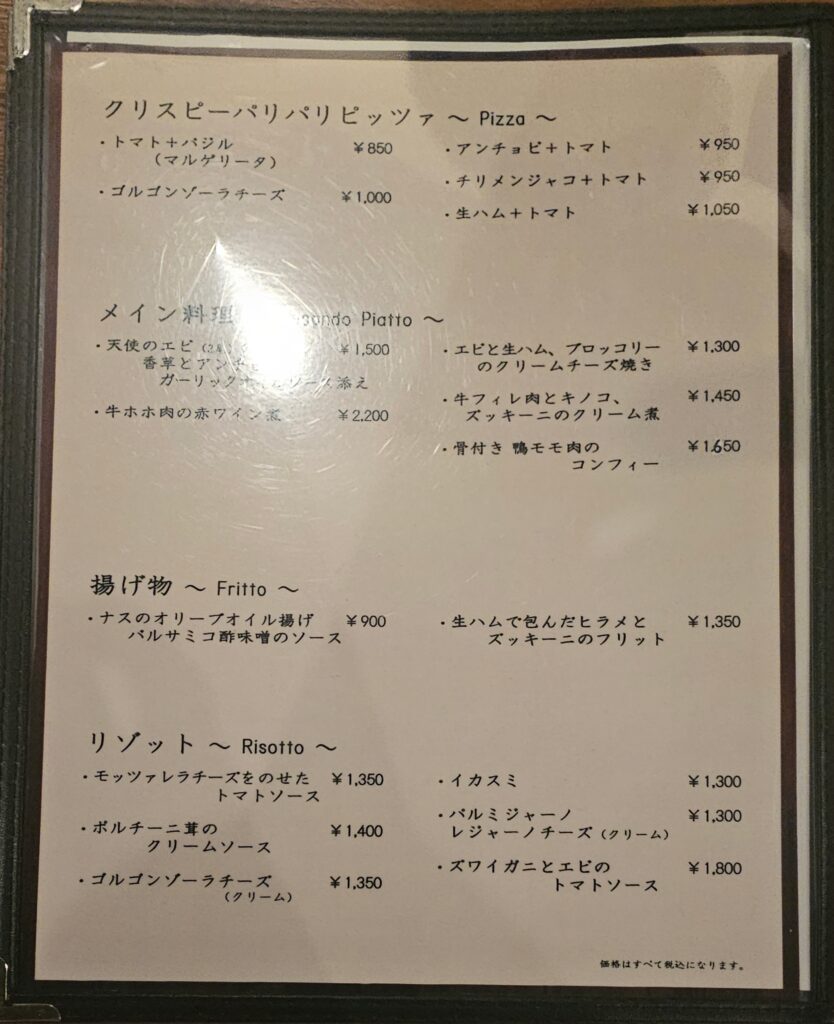 クリスピーパリパリピッツァ 〜 Pizza 〜
・トマト＋バジル ￥850
（マルゲリータ）
・ゴルゴンゾーラチーズ ￥1,000
・アンチョビ＋トマト ￥950
・チリメンジャコ＋トマト ￥950
・生ハム＋トマト ￥1,050
メイン料理 Piatto 〜
・天使のエビ ￥1,500
香草とアンチョ
ガーリック ソース添え
・牛ホホ肉の赤ワイン煮 ￥2,200
・エビと生ハム、ブロッコリー ￥1,300
のクリームチーズ焼き
・牛フィレ肉とキノコ、 ￥1,450
ズッキーニのクリーム煮
・骨付き 鴨モモ肉の ￥1,650
コンフィー
揚げ物 〜 Fritto 〜
・ナスのオリーブオイル揚げ ￥900
バルサミコ酢味噌のソース
・生ハムで包んだヒラメと ￥1,350
ズッキーニのフリット
リゾット 〜 Risotto 〜
・モッツァレラチーズをのせた ￥1,350
トマトソース
・ポルチーニ茸の ￥1,400
クリームソース
・ゴルゴンゾーラチーズ ￥1,350
（クリーム）
・イカスミ ￥1,300
・パルミジャーノ ￥1,300
レジャーノチーズ（クリーム）
・ズワイガニとエビの ￥1,800
トマトソース
価格はすべて税込になります。